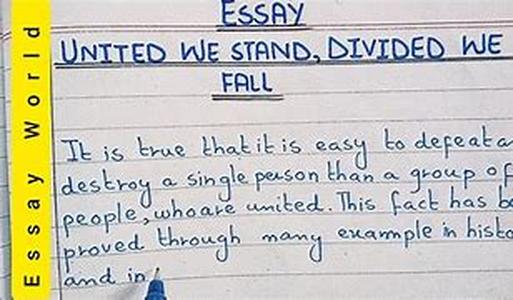 ESSAY
UNITED WE STAND, DIVIDED WE
FALL
It is true that it is easy to defeat a
destroy a single person than a group of
people, who are united. This fact has b
proved through many example in histo
and in
Essay World